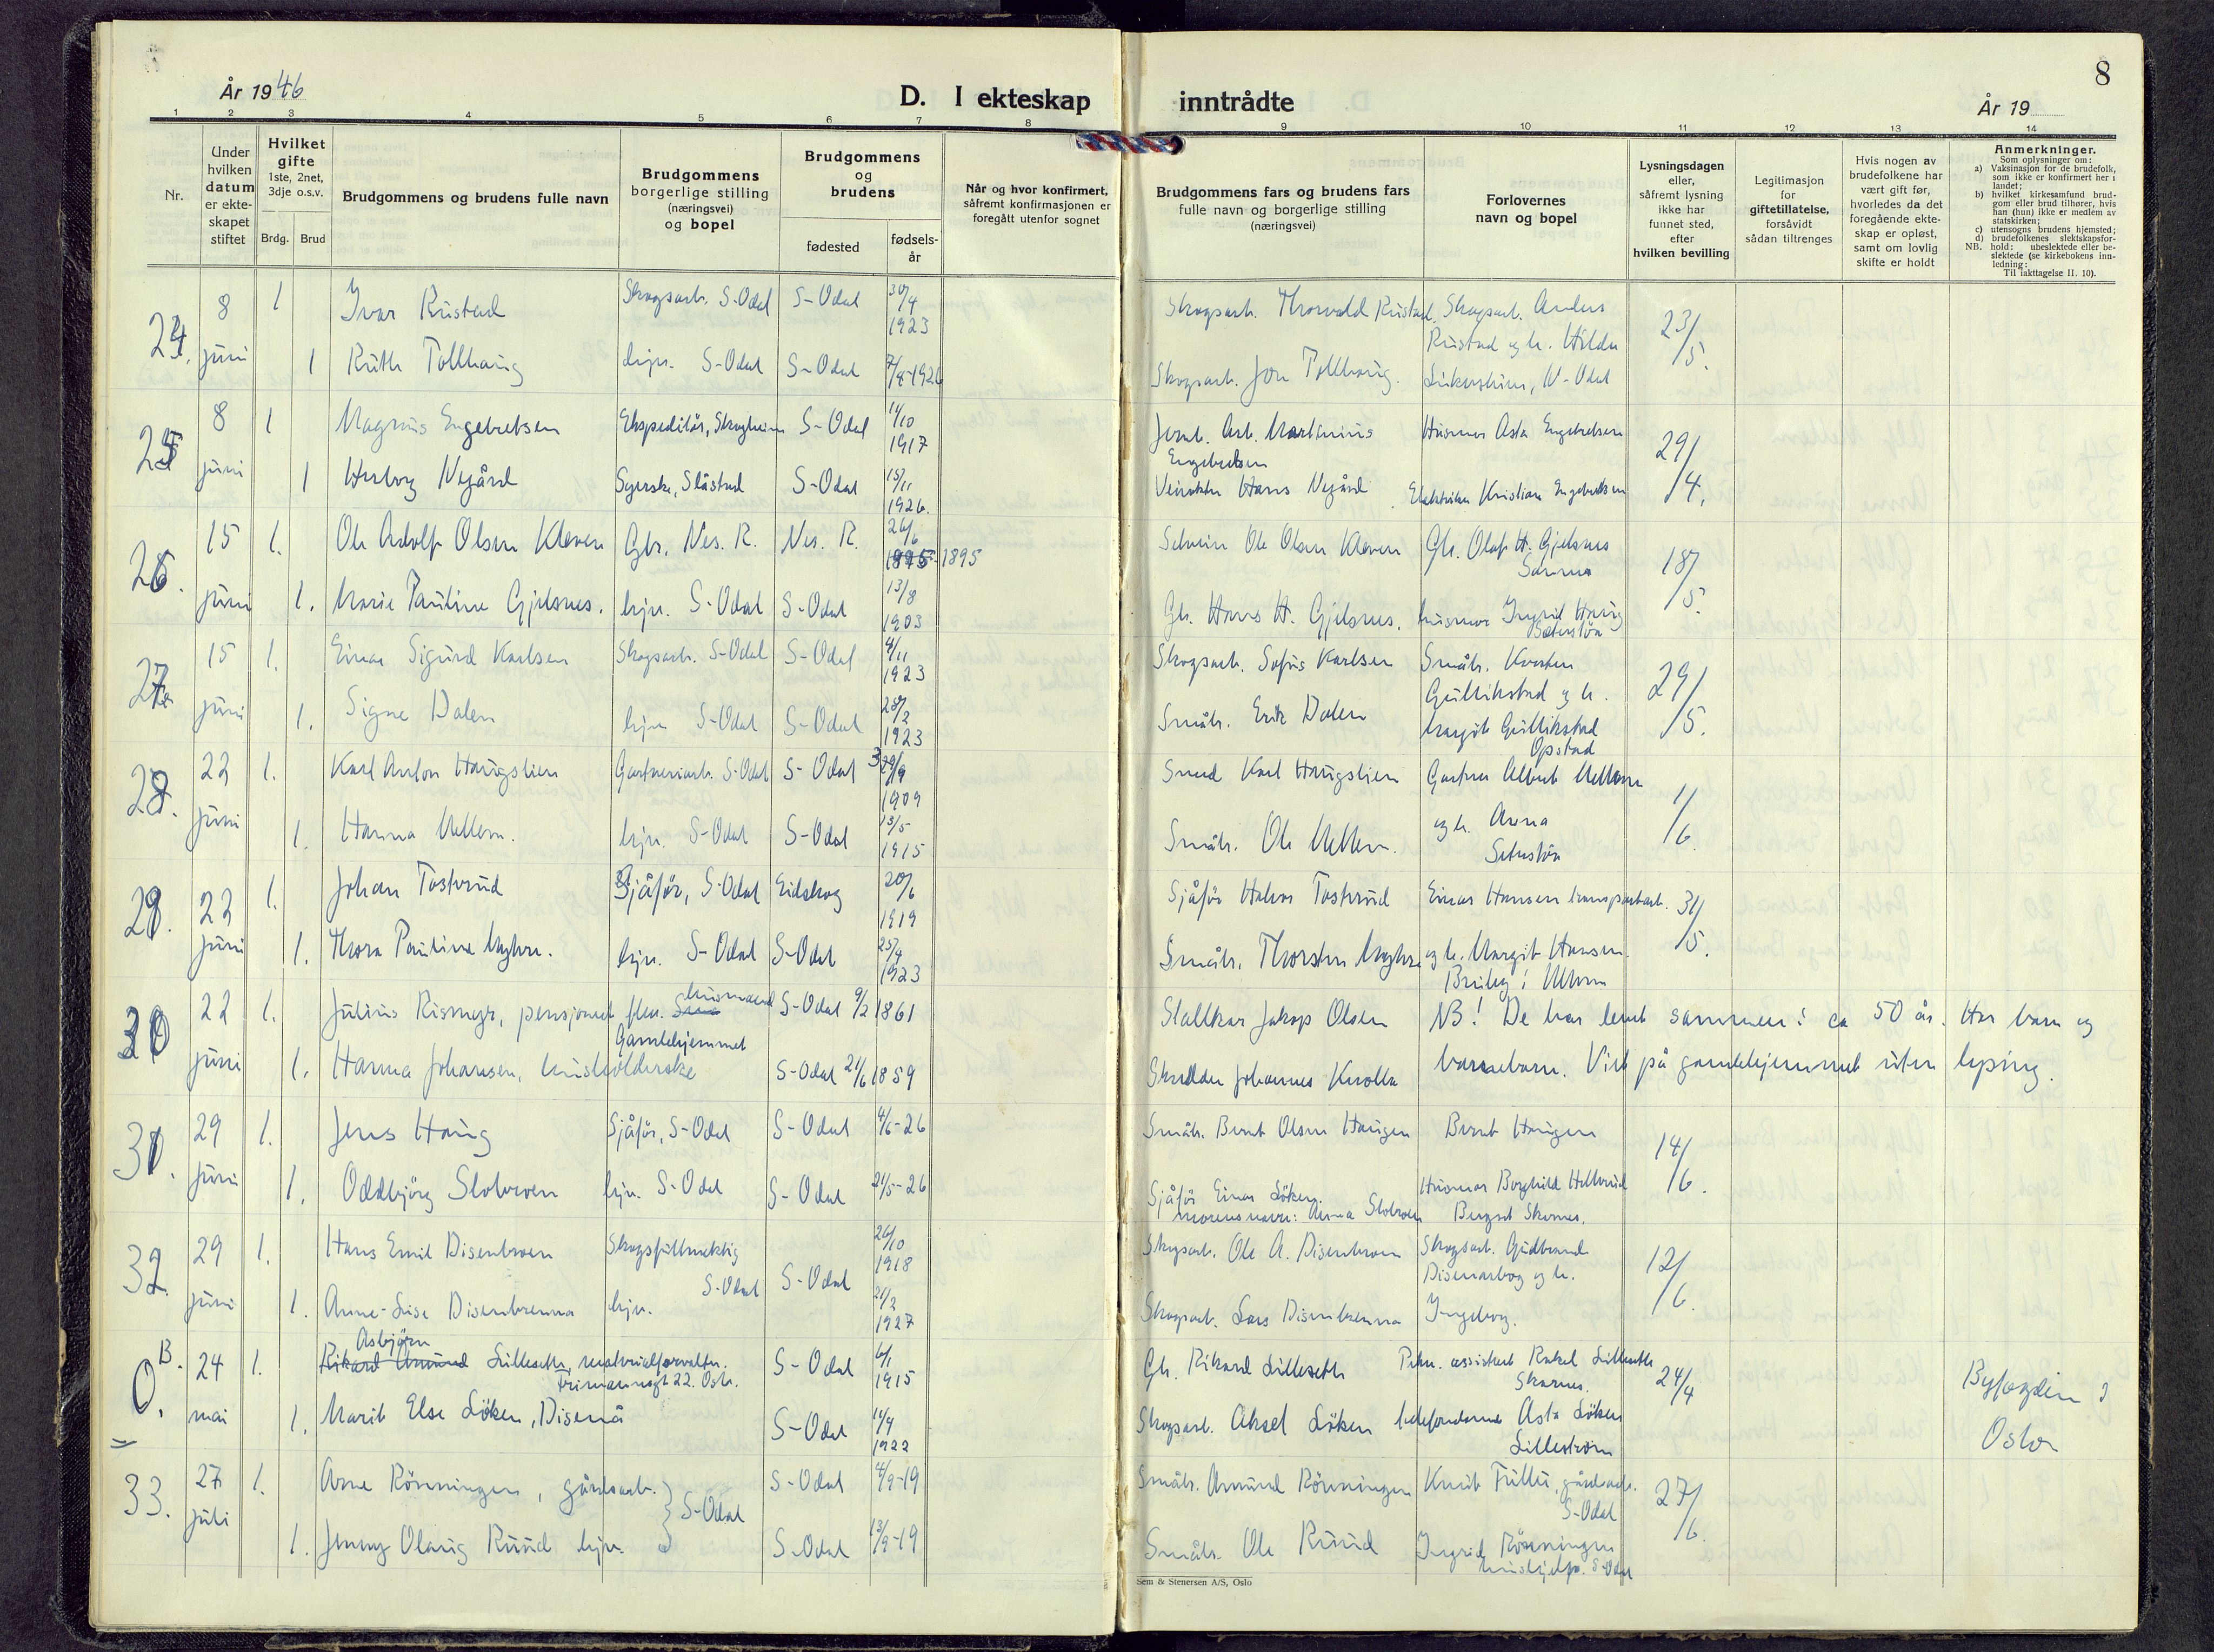 År 1946
D. I ekteskap inntrådte
År 19
8
1 2 3 4 5 6 7 8 9 10 11 12 13 14
Nr.
Under hvilken datum er ekteskapet stiftet
Hvilket gifte 1ste, 2net, 3dje o.s.v.
Brdg. Brud
Brudgommens og brudens fulle navn
Brudgommens borgerlige stilling (næringsvei) og bopel
Brudgommens og brudens
fødested
fødsels-år
Når og hvor konfirmert, såfremt konfirmasjonen er foregått utenfor sognet
Brudgommens fars og brudens fars fulle navn og borgerlige stilling (næringsvei)
Forlovernes navn og bopel
Lysningsdagen eller, såfremt lysning ikke har funnet sted, efter hvilken bevilling
Legitimasjon for giftetillatelse, forsåvidt sådan tiltrenges
Hvis nogen av brudefolkene har vært gift før, hvorledes da det foregående ekteskap er opløst, samt om lovlig skifte er holdt
Anmerkninger.
Som oplysninger om:
a) Vaksinasjon for de brudefolk, som ikke er konfirmert her i landet;
b) hvilket kirkesamfund brudgom eller brud tilhører, hvis han (hun) ikke er medlem av statskirken;
c) utensogns brudens hjemsted;
d) brudefolkenes slektskapsforhold: ubeslektede eller beslektede (se kirkebokens innledning:
NB.
Til iakttagelse II. 10).
24. 8 juni 1 Ivar Rustad Skogsarb. S-Odal S-Odal 30/4 1923 Skogsarb. Thorvald Rustad. Skogsarb. Anders Rustad og h. Hilda 23/5.
1 Ruth Tollhaug hjv. S-Odal S-Odal 7/8-1926 Skogsarb. Jon Tollhaug. N-Odal
25 8 juni 1 Magnus Engebretsen Ekspeditör, Skogheim S-Odal 11/10 1917 Jernb. Arb. Martinius Engebretsen Husmor Asta Engebretsen 29/4.
1 Herborg Negård Syerske, Slåstad S-Odal 15/11 1926. Hans Negård Elektriker Kristian Engebretsen
26. 15 juni 1. Ole Adolf Olsen Kleven Gbr. Nes. R. Nes. R. 26/6 1895 Selveier Ole Olsen Kleven Gbr. Olaf H. Gjelsnes Sanna 18/5.
1. Marie Pauline Gjelsnes. hjv. S-Odal S-Odal 13/8 1903 Gbr. Hans H. Gjelsnes. husmor Ingrid Haug Seterstöa
27. 15 juni 1. Einar Sigurd Karlsen Skogsarb. S-Odal S-Odal 4/11 1923 Skogsarb. Sofus Karlsen Småbr. Karsten Gullikstad og h. 29/5.
1. Signe Dalen hjv. S-Odal S-Odal 28/2 1923 Småbr. Erik Dalen Margit Gullikstad Opstad
28. 22 juni 1. Karl Anton Haugslien Gartneriarb. S-Odal S-Odal 1909 Smed Karl Haugslien Gartner Albert Mellem 1/6.
1. Hanna Mellem. hjv. S-Odal S-Odal 13/5 1915 Småbr. Ole Mellem. og h. Anna Seterstöa
29. 22 juni 1. Johan Tostrud Sjåför, S-Odal Eidskog 20/6 1919 Sjåför Halvor Tostrud Einar Hansen transportarb. 31/5.
1. Thora Pauline Myhre. hjv. S-Odal S-Odal 25/4 1923 Småbr. Thorsten Myhre og h. Margit Hansen.
30 22 juni 1. Julius Rismyr, pensjonert husmand Gamlehjemmet S-Odal 9/2 1861 Stallkar Jakop Olsen NB! De har levet sammen i ca 50 år. Har barn og
1. Hanna Johansen, husholderske S-Odal 21/6 1859 Skredder Johannes Knolla barnebarn. Viet på gamlehjemmet uten lysing.
31. 29 juni 1. Jens Haug Sjåför, S-Odal S-Odal 4/6-26 Småbr. Bernt Olsen Haugen Bernt Haugen 14/6.
1. Oddbjörg Slobroen hjv. S-Odal S-Odal 21/5-26 Sjåför Einar Löken. morens navn: Anna Slobroen Husmor Borghild Hellerud Skarnes.
32. 29 juni 1. Hans Emil Disenbroen Skogsfullmektig S-Odal S-Odal 26/10 1918 Skogsarb. Ole A. Disenbroen Skogsarb. Gudbrand Disenarbog og h. 12/6.
1. Anne-Lise Disenbrenna hjv. 21/2 1927 Skogsarb. Lars Disenbrenna Ingeborg.
B. 0. 24 mai 1. Asbjörn Rikard Amund Lilleseth, materialforvalter. Trimannsgt 22. Oslo. S-Odal 6/1 1915 Gbr. Rikard Lilleseth assistent Rakel Lilleseth Skarnes. 24/4 Byfogden i Oslo
1. Marit Else Löken, Disenå S-Odal 1922 Skogsarb. Aksel Löken telefondame Asta Löken Lilleström
33. 27 juli 1. Arne Rönningen, gårdsarb. S-Odal S-Odal 4/9-19 Småbr. Amund Rönningen Knut Fulu, gårdsarb. S-Odal 27/6.
1. Jenny Olaug Ruud hjv. S-Odal 13/9-19 Småbr. Ole Ruud Ingrid Rönningen hushjelp. S-Odal
Sem & Stenersen A/S, Oslo